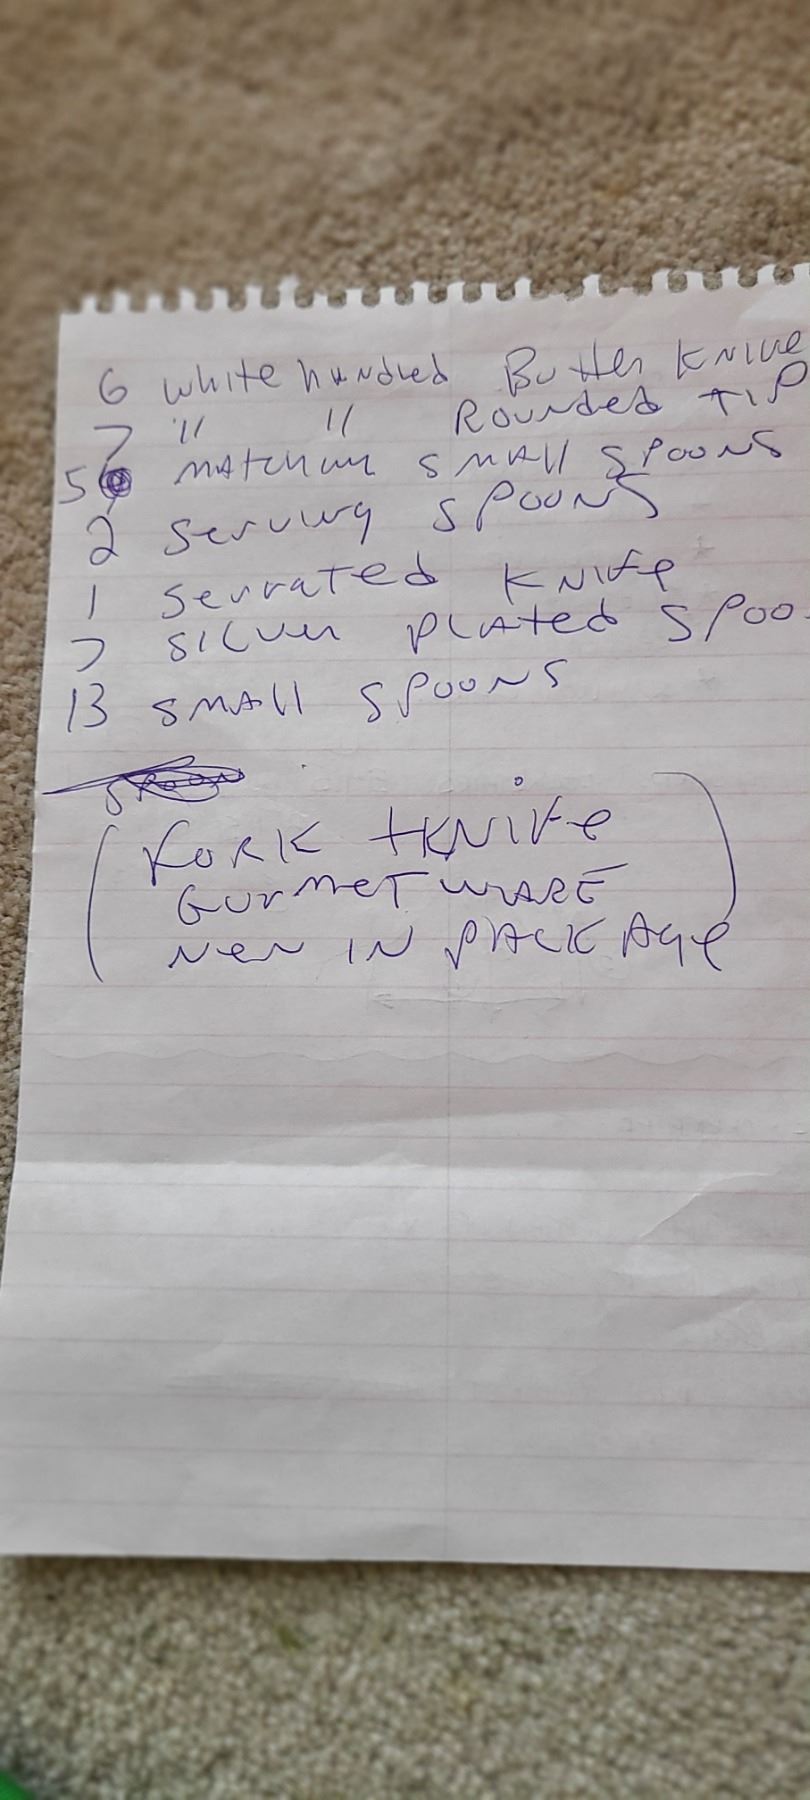 6 White handled Butter Knive
7 " " Rounded TIP
5 matching small spoons
2 Serving spoons
1 Serrated Knife
7 Silver Plated Spoo
13 small spoons
Spoon
(Fork + Knife
Gurmet ware
New IN Package)